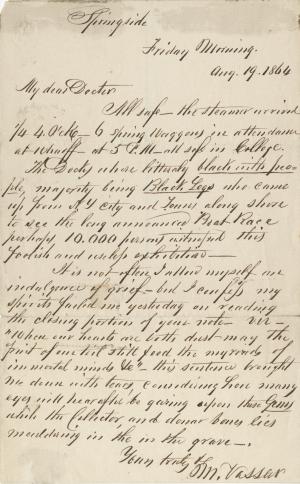 Springside
Friday Morning.
Aug. 19. 1864
My dear Doctor
All safe — the steamer arrived
1/4 4. Oclk — 6 spring Waggons in attendance
at Wharff — at 5 P.M — all safe in College.
The Docks where litteraly black with peo-
ple, majority being Black Legs who came
up from N Y City and towns along shore
to see the long announced Boat Race
perhaps 10.000 persons witnessed this
foolish and useless exhibition —
It is not often I allow myself an
indulgence of grief — but I confess my
spirits failed me yesterday on reading
the closing portion of your note — viz —
"When our hands are both dust may the
fruit of our toil still feed the myriads of
immortal minds &c" — this sentence brought
me down with tears, considering how many
eyes will hearafter be gazing upon these Gems
while the Collector, and donar bones lies
mouldering in the in the grave —.
Yours truly
M. Vassar